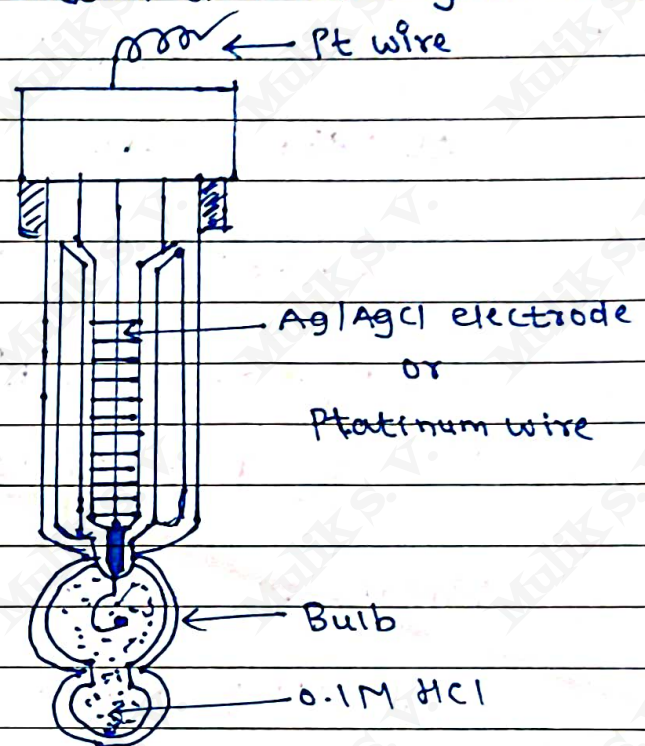 Pt wire
Ag|AgCl electrode
or
Platinum wire
Bulb
0.1M HCl
Mulik S. V.